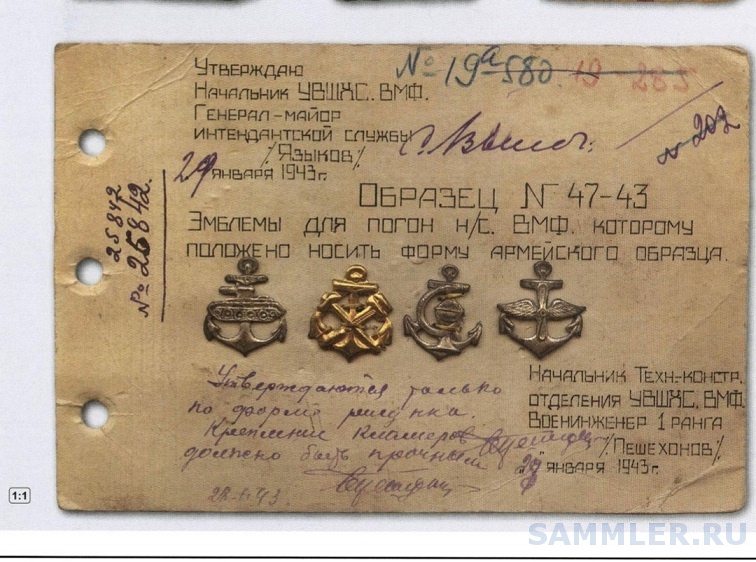 Утверждаю
№ 19а-580. 19-285
Начальник УВШХС. ВМФ.
Генерал-майор
интендантской службы
/Языков/
29 января 1943г.
№ 202
№ 25842.
25842
Образец № 47-43
Эмблемы для погон н/с. ВМФ. которому
положено носить форму армейского образца.
Утверждаются только
по форме рисунка.
Крепление кламеров
должно быть прочным
Начальник Техн.-констр.
отделения УВШХС. ВМФ
Военинженер 1 ранга
/Пешехонов/
29 января 1943г.
1:1
SAMMLER.RU